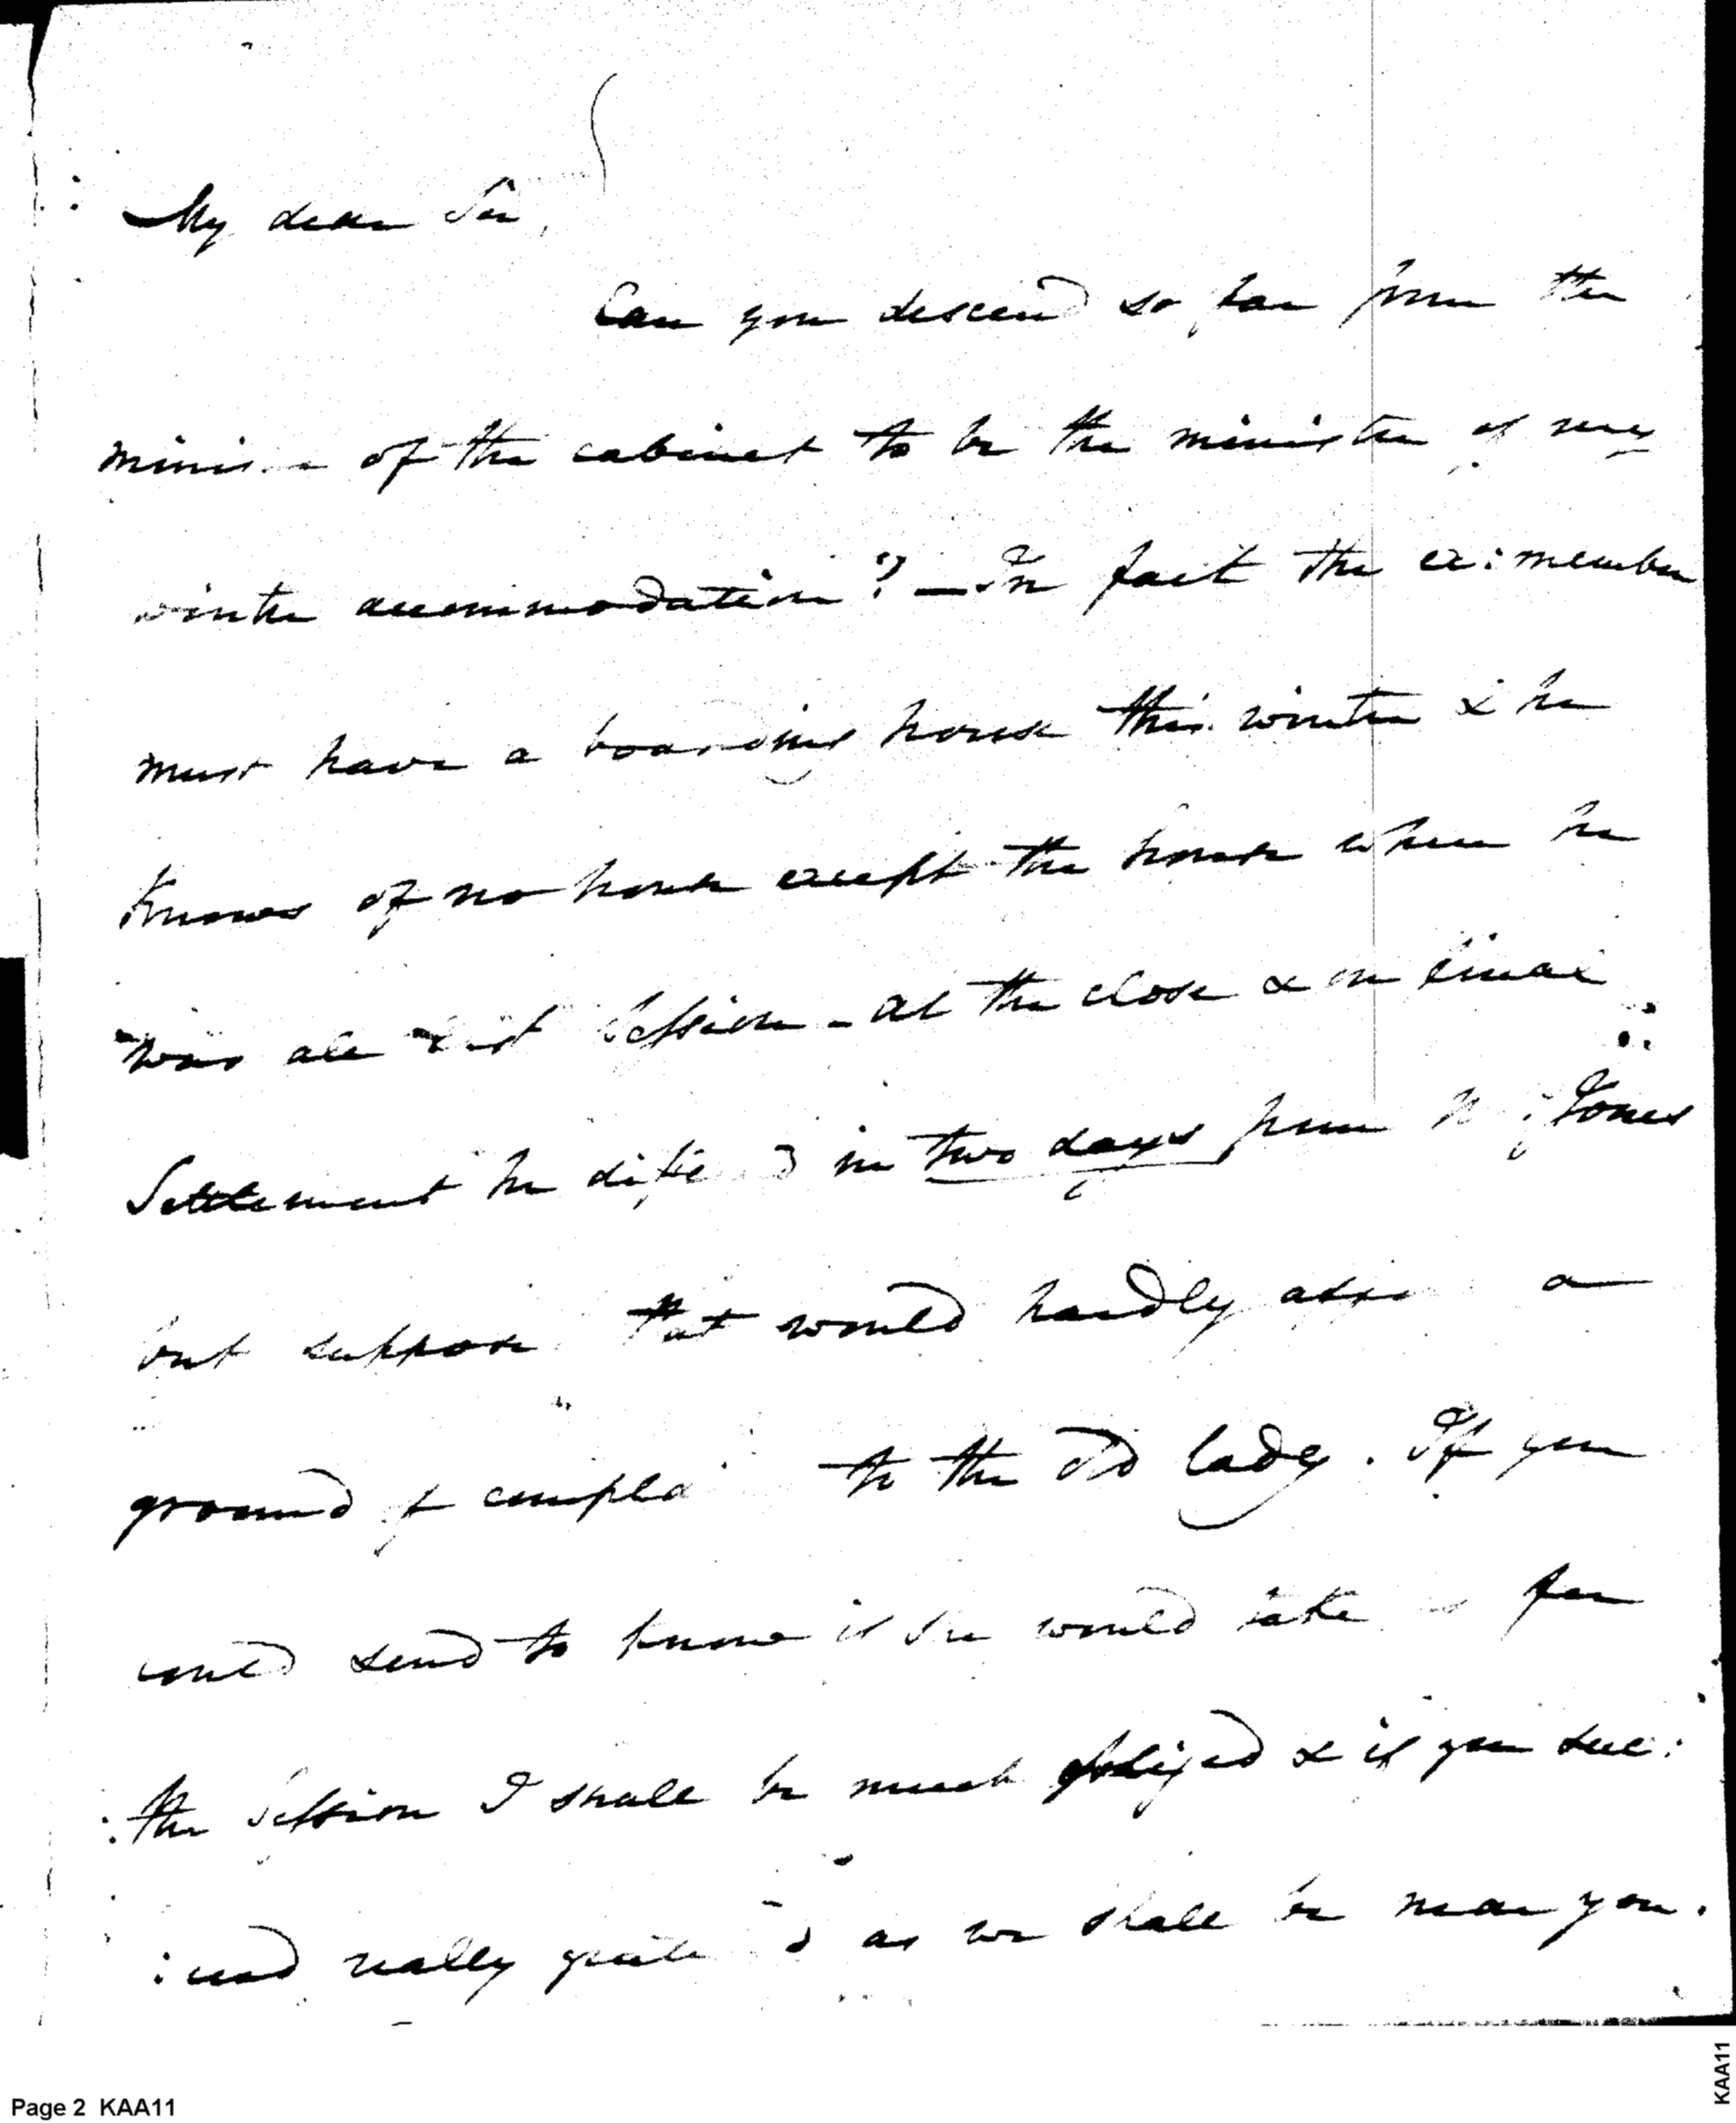 My dear Sir,
Can you descend so far from the
minis e of the cabinet to be the minister of my
winter accommodation? — In fact the ex: member
must have a boarding house this winter & he
knows of no house except the house where he
was all last Session - at the close & on final
Settlement he diffe d in two days from Jones
but suppose that would hardly a
ground of compla to the old lady. If you
could send to know if she would take for
the Session I shall be much obliged & if you suc:
:ceed really as we shall be near you.
Page 2 KAA11
KAA11